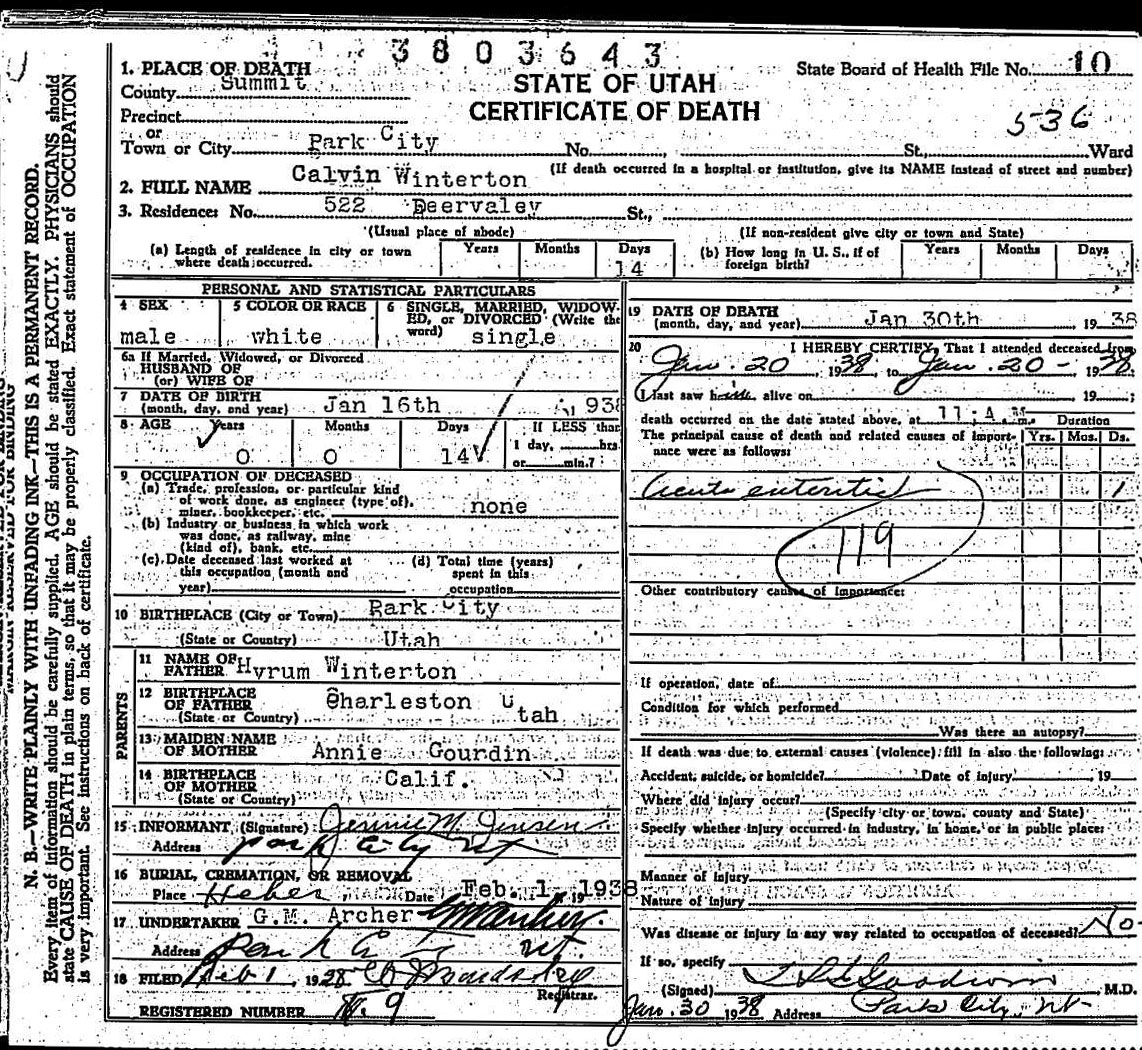 3803643
1. PLACE OF DEATH
STATE OF UTAH
CERTIFICATE OF DEATH
State Board of Health File No. 10
County Summit
5-36
Precinct
or
Town or City Park City No. St., Ward
(If death occurred in a hospital or institution, give its NAME instead of street and number)
2. FULL NAME Calvin Winterton
3. Residence: No. 522 Deervaley St.,
(Usual place of abode) (If non-resident give city or town and State)
(a) Length of residence in city or town where death occurred. Years Months Days 14
(b) How long in U. S., if of foreign birth? Years Months Days
PERSONAL AND STATISTICAL PARTICULARS
4 SEX male
5 COLOR OR RACE white
6 SINGLE, MARRIED, WIDOWED, or DIVORCED (Write the word) single
6a If Married, Widowed, or Divorced
HUSBAND OF
(or) WIFE OF
7 DATE OF BIRTH
(month, day, and year) Jan 16th 938
8 AGE Years 0 Months 0 Days 14 If LESS than 1 day, hrs. or min.?
9 OCCUPATION OF DECEASED
(a) Trade, profession, or particular kind
of work done, as engineer (type of),
miner, bookkeeper, etc. none
(b) Industry or business in which work
was done, as railway, mine
(kind of), bank, etc.
(c) Date deceased last worked at
this occupation (month and
year)
(d) Total time (years)
spent in this
occupation
10 BIRTHPLACE (City or Town) Park City
(State or Country) Utah
PARENTS
11 NAME OF FATHER Hyrum Winterton
12 BIRTHPLACE OF FATHER Charleston Utah
(State or Country)
13 MAIDEN NAME OF MOTHER Annie Gourdin
14 BIRTHPLACE OF MOTHER Calif.
(State or Country)
15 INFORMANT (Signature) Jennie M. Jensen
Address Park City Ut
16 BURIAL, CREMATION, OR REMOVAL
Place Heber Date Feb. 1, 1938
17 UNDERTAKER G.M. Archer GMArcher
Address Park City Ut.
18 FILED Feb 1, 1928
Registrar.
REGISTERED NUMBER 9
19 DATE OF DEATH
(month, day, and year) Jan 30th 1938
20 I HEREBY CERTIFY, That I attended deceased from
Jan. 20 1938, to Jan. 20 - 1938
I last saw him alive on 19
death occurred on the date stated above, at 11 A. M m.
Duration
The principal cause of death and related causes of importance were as follows: Yrs. Mos. Ds.
Acute enteritis 1
119
Other contributory causes of importance:
If operation, date of
Condition for which performed
Was there an autopsy?
If death was due to external causes (violence) fill in also the following:
Accident, suicide, or homicide? Date of injury 19
Where did injury occur?
(Specify city or town, county and State)
Specify whether injury occurred in industry, in home, or in public place:
Manner of injury
Nature of injury
Was disease or injury in any way related to occupation of deceased? No
If so, specify
(Signed) Goodwin M.D.
Jan. 30 1938 Address Park City, Ut
N. B.—WRITE PLAINLY WITH UNFADING INK—THIS IS A PERMANENT RECORD.
Every item of information should be carefully supplied. AGE should be stated EXACTLY. PHYSICIANS should
state CAUSE OF DEATH in plain terms, so that it may be properly classified. Exact statement of OCCUPATION
is very important. See instructions on back of certificate.